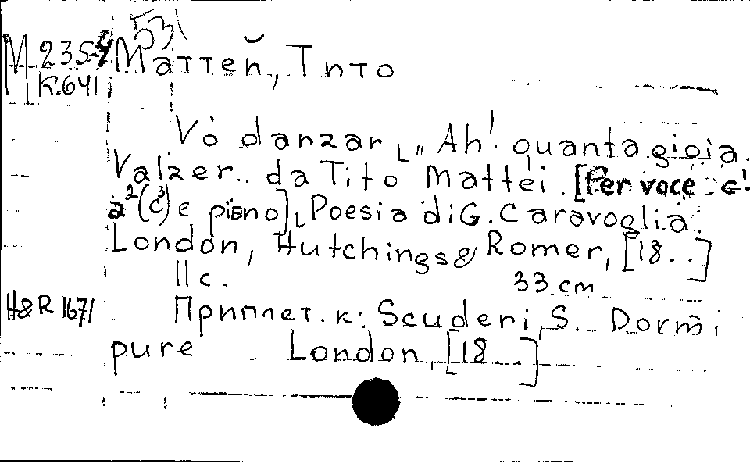 531
М 235-4 Маттеи, Тито
К.641
Vo danzar „Ah! quanta gioia.
Valzer.. da Tito Mattei. [Per voce: c¹
a²(c³) e piano], Poesia di G. Caravoglia.
London, Hutchings & Romer, [18..]
11 c. 33 cm
H&R 1671 Приплет. к: Scuderi, S. Dormi
pure London, [18..]